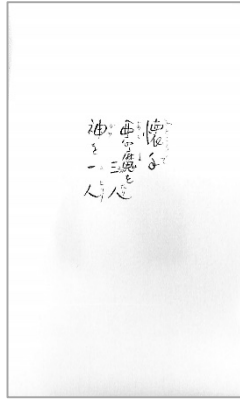 懐手
悪魔を三人
神を一人